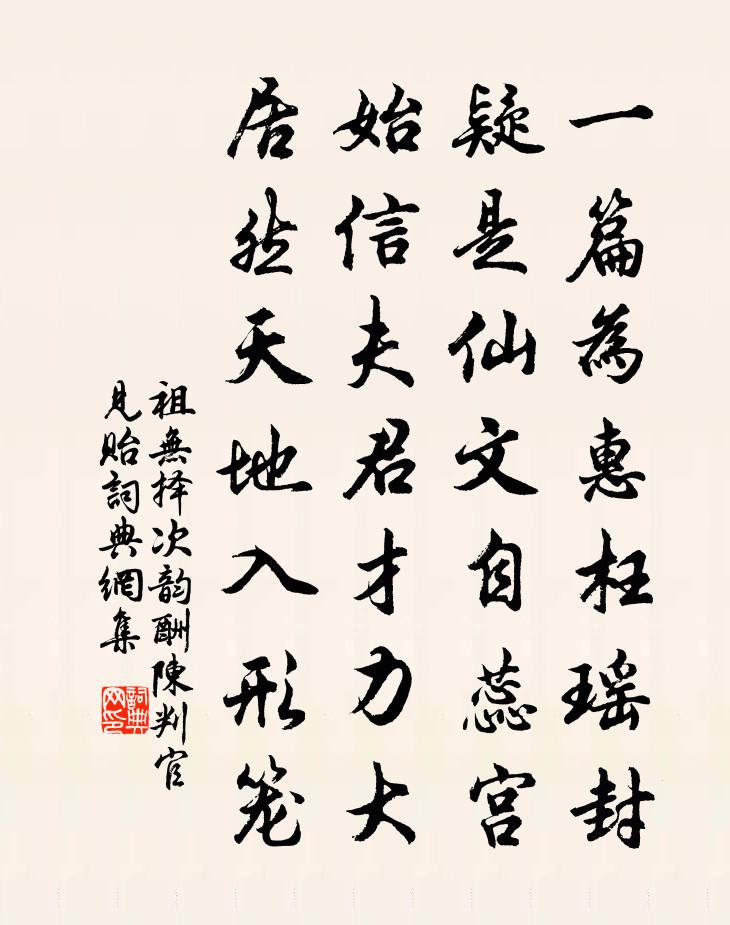 一篇為惠枉瑶封
疑是仙文自蕊宫
始信夫君才力大
居然天地入形笼
祖無择次韵酬陳判官
見贻詞典網集
詞典网印